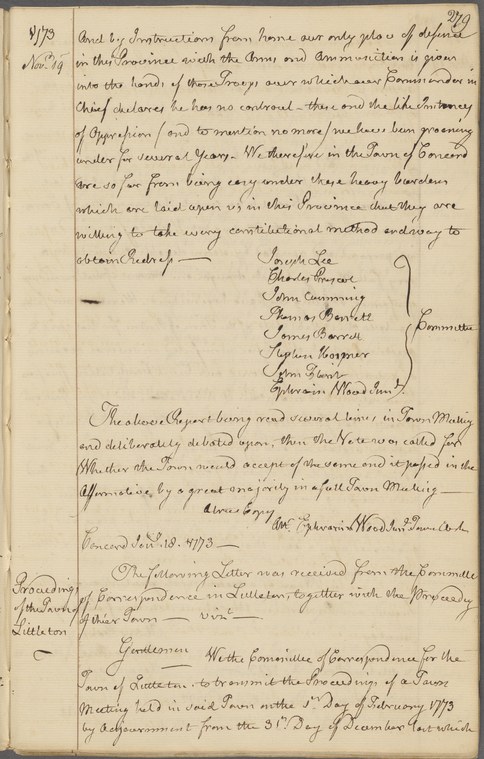 279
1773
Nov.r 19
And by Instructions from home our only place of defence
in this Province with the Arms and Ammunition is given
into the hands of those Troops over which our Commander in
Chief declares he has no controul – these and the like Instances
of Oppression (and to mention no more) we have been groaning
under for several Years – We therefore in the Town of Concord
are so far from being easy under these heavy burdens
which are laid upon us in this Province that they are
willing to take every constitutional method and way to
obtain Redress —
Joseph Lee
Charles Prescot
John Cumming
Thomas Barrett
James Barrett
Stephen Hosmer
John Flint
Ephraim Wood Jun.r
Committee
The above Report being read several times, in Town Meeting
and deliberately debated upon, then the Vote was called for
Whether the Town would accept of the same and it passed in the
Affirmative, by a great majority in a full Town Meeting —
A true Copy
Att. Ephraim Wood Jun.r Town Clerk
Concord Jan.y 18. 1773 —
Proceedings
of the Town of
Littleton
The following Letter was received from the Committee
of Correspondence in Littleton, together with the Proceedgs
of their Town — viz.t —
Gentlemen We the Committee of Correspondence for the
Town of Littleton to transmit the Proceedings of a Town
Meeting held in said Town on the 1.st Day of February 1773
by Adjournment from the 31.st Day of December last which